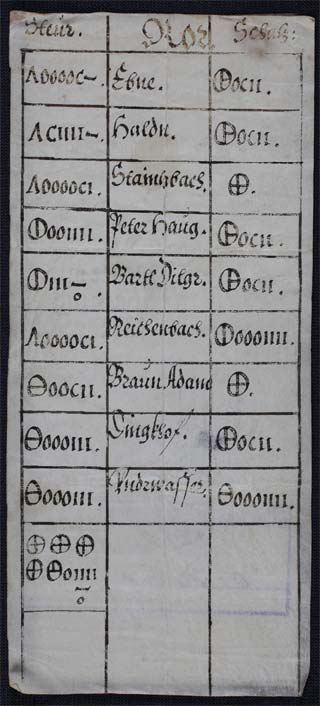 Steür. Rot. Schuls:
ΛooooC–. Ebne. ⊕ocıı.
ΛCıııı–. Haldn. ⊕ocıı.
Λoooocı. Stainbach. ⊕.
⊕ooıııı. Peter Haug. ⊕ocıı.
⊕ııı–. Bartl Ditgr. ⊕ocıı.
Λoooocı. Reichenbach. ⊕oooıııı.
Θoocıı. Braun Adam ⊕.
Θoooııı. Dingkhof. ⊕ocıı.
Θoooııı. Vndrwasser. Θoooıııı.
⊕⊕⊕
⊕Θoıııı
ō